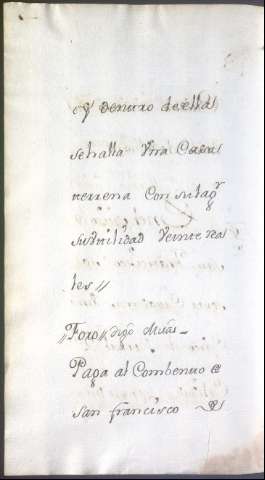 y dentro de ella
se halla Una Casa
terrena Con su lagr
su utilidad Veinte rea
les //
// Foro // digo Misas _
Paga al Combento de
san francisco de